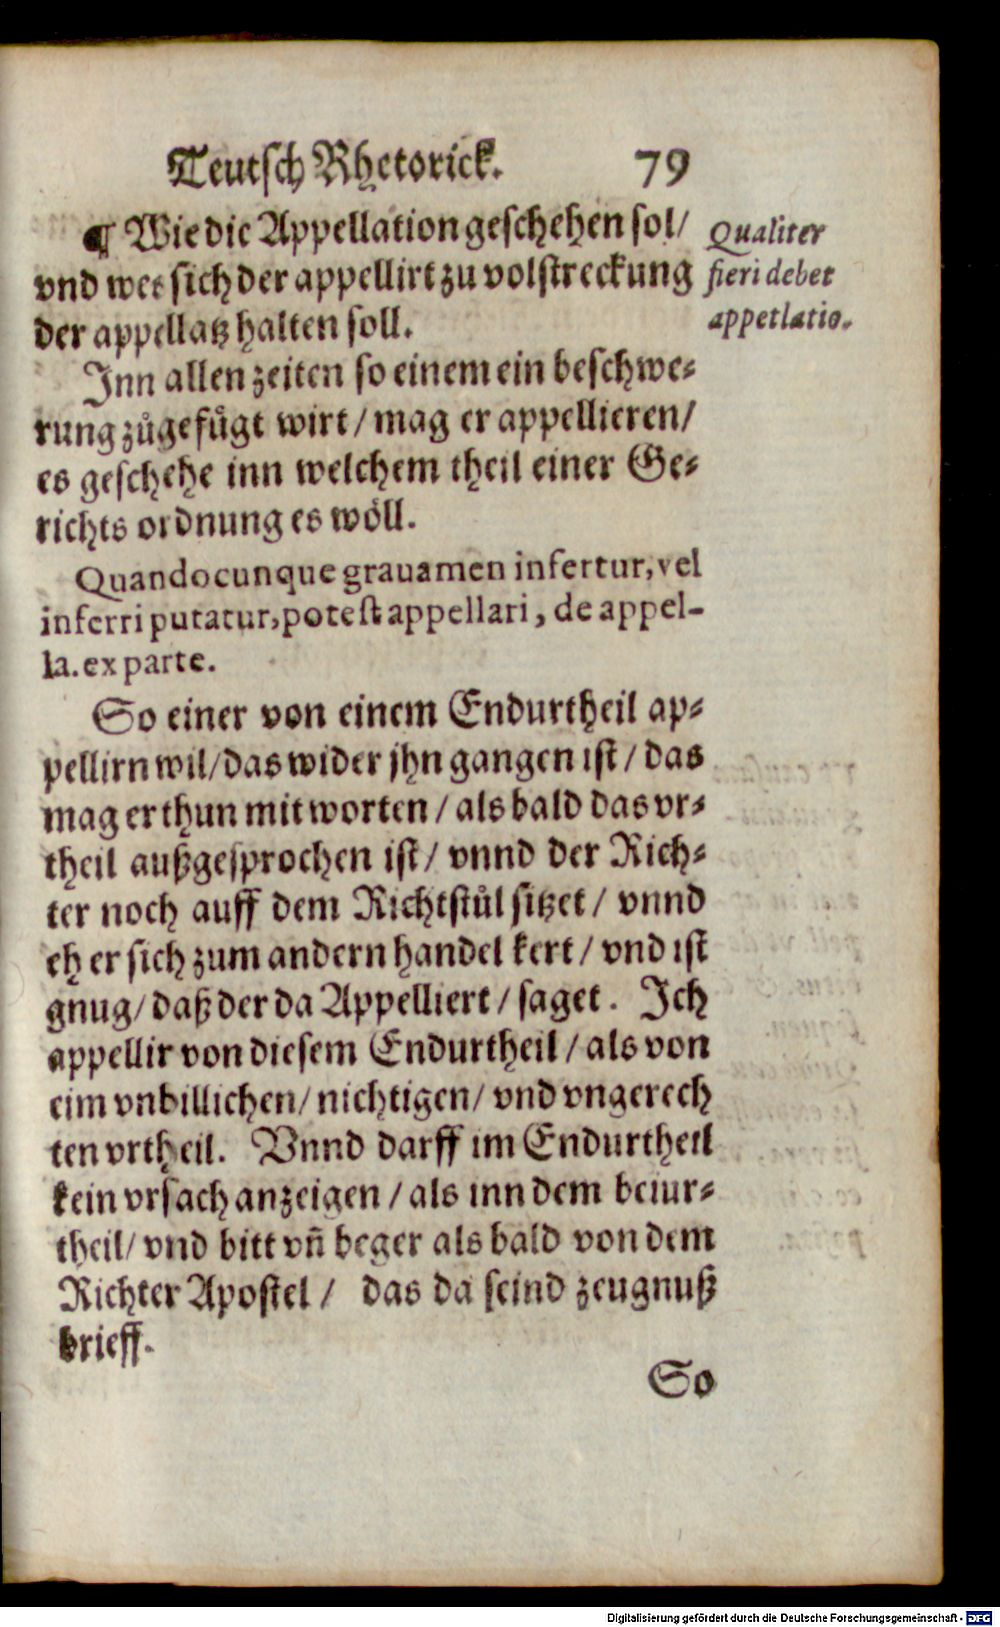 Teutsch Rhetorick. 79
¶ Wie die Appellation geschehen sol/
vnd wes sich der appellirt zu volstreckung
der appellatz halten soll.
Qualiter
fieri debet
appetlatio.
Inn allen zeiten so einem ein beschwe-
rung zůgefůgt wirt / mag er appellieren/
es geschehe inn welchem theil einer Ge-
richts ordnung es wöll.
Quandocunque grauamen infertur, vel
inferri putatur, potest appellari, de appel-
la. ex parte.
So einer von einem Endurtheil ap-
pellirn wil/das wider jhn gangen ist / das
mag er thun mit worten / als bald das vr-
theil außgesprochen ist/ vnnd der Rich-
ter noch auff dem Richtstůl sitzet / vnnd
eh er sich zum andern handel kert / vnd ist
gnug/ daß der da Appelliert / saget. Ich
appellir von diesem Endurtheil / als von
eim vnbillichen/ nichtigen/ vnd vngerech
ten vrtheil. Vnnd darff im Endurtheil
kein vrsach anzeigen / als inn dem beiur-
theil/ vnd bitt vñ beger als bald von dem
Richter Apostel / das da seind zeugnuß
brieff.
So
Digitalisierung gefördert durch die Deutsche Forschungsgemeinschaft - DFG